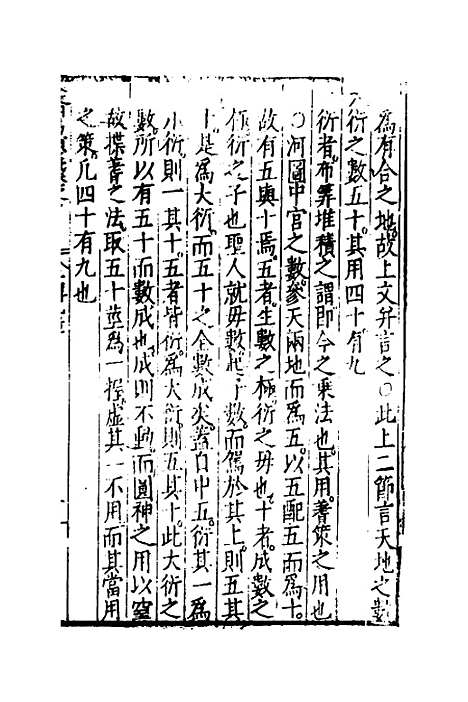 為有合之地故上文并言之○此上二節言天地之數
大衍之數五十其用四十有九
衍者布筭堆積之謂即今之乗法也其用蓍策之用也
○河圖中宮之數參天兩地而為五以五配五而為十
故有五與十焉五者生數之極衍之毋也十者成數之
極衍之子也聖人就毋數起子數而駕於其上則五其
十是為大衍而五十之全數成矣蓋自中五衍其一為
小衍則一其十五者皆衍為大衍則五其十此大衍之
數所以有五十而數成也成則不動而圓神之用以窒
故揲蓍之法取五十莖為一握虚其一不用而其當用
之策凢四十有九也